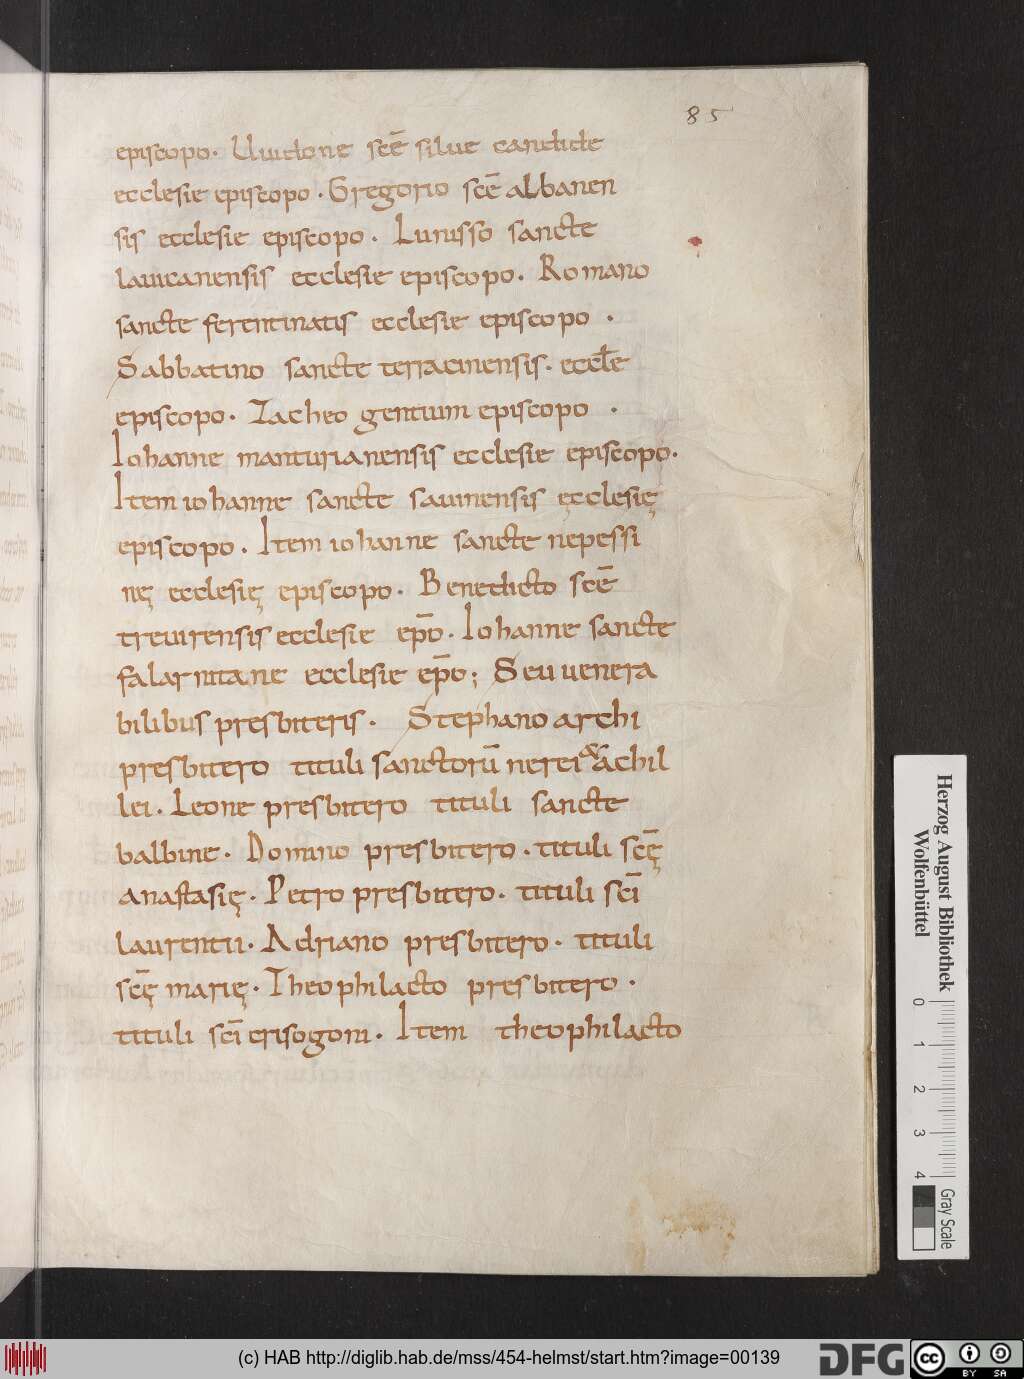 85
episcopo. Uuidone scē silue candide
ecclesie episcopo. Gregorio scē albanen
sis ecclesie episcopo. Lunisso sancte
lauicanensis ecclesie episcopo. Romano
sancte ferentinatis ecclesie episcopo.
Sabbatino sancte terracinensis. eccłe
episcopo. Zacheo gentium episcopo.
Iohanne manturianensis ecclesie episcopo.
Item iohanne sancte sauinensis ęcclesię
episcopo. Item iohanne sancte nepessi
nę ecclesię episcopo. Benedicto scē
treuirensis ecclesie ep̄o. Iohanne sancte
falaritane ecclesie ep̄o; Seu uenera
bilibus presbiteris. Stephano archi
presbitero tituli sanctorū nerei & achil
lei. Leone presbitero tituli sancte
balbine. Domino presbitero. tituli scę̄
anastasię. Petro presbitero. tituli scī
laurentii. Adriano presbitero. tituli
scę̄ marię. Theophilacto presbitero.
tituli scī crisogoni. Item theophilacto
Herzog August Bibliothek
Wolfenbüttel
0 1 2 3 4
Gray Scale
(c) HAB http://diglib.hab.de/mss/454-helmst/start.htm?image=00139
DFG
cc BY SA